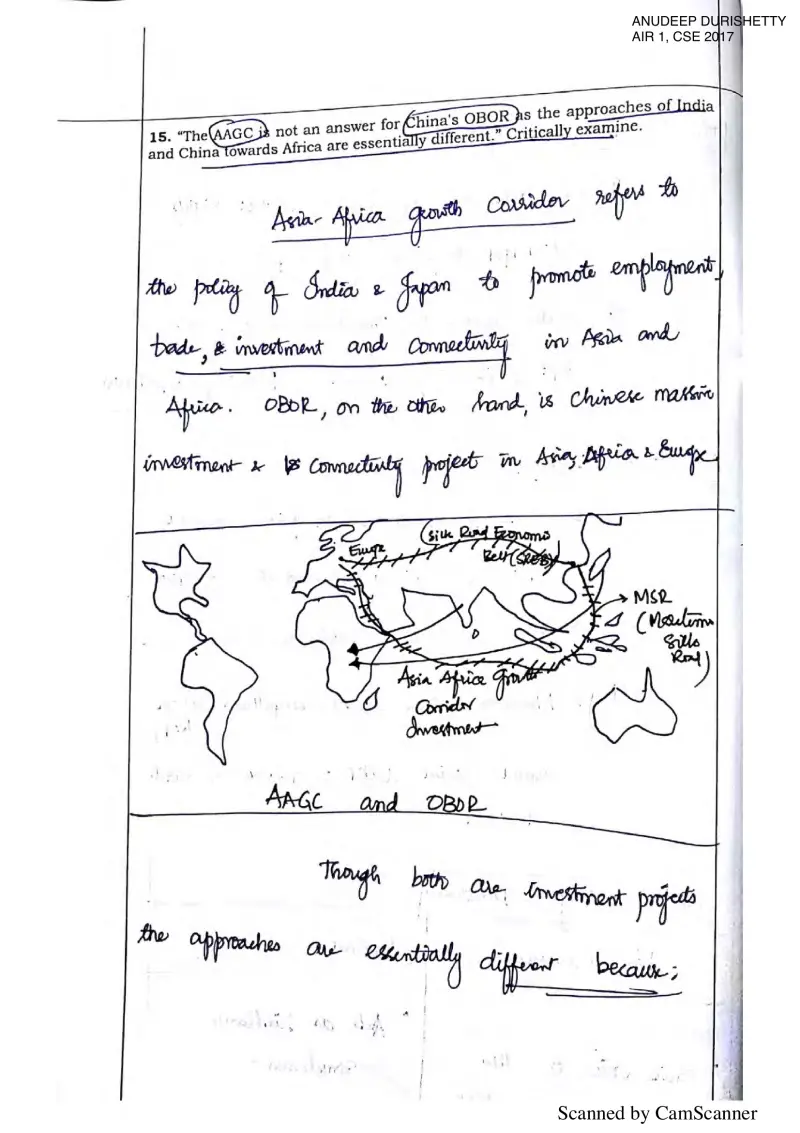 ANUDEEP DURISHETTY
AIR 1, CSE 2017
15. "The AAGC is not an answer for China's OBOR as the approaches of India
and China towards Africa are essentially different." Critically examine.
Asia-Africa growth Corridor refers to
the policy of India & Japan to promote employment,
trade, & investment and connectivity in Asia and
Africa. OBOR, on the other hand, is Chinese massive
investment & connectivity project in Asia, Africa & Europe
(Silk Road Economic
Europe
Belt (SREB)
MSR
(Maritime
Silk
Road)
Asia Africa Growth
Corridor
Investment
AAGC and OBOR
Though both are investment projects
the approaches are essentially different because;
Scanned by CamScanner